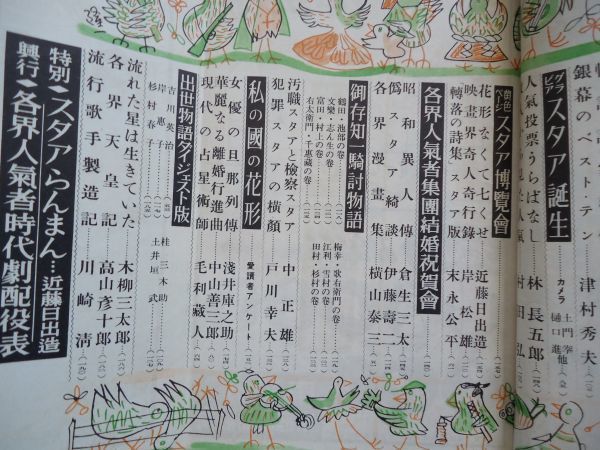 銀幕のベスト・テン 津村秀夫
グラビア スタア誕生 カメラ 土門幸他 樋口進
人氣投票うらばなし 林長五郎
スタア博覧會
花形なくて七くせ 近藤日出造
映画界奇人奇行錄 岸松雄
轉落の詩集・スタア版 末永公平
各界人氣者集團結婚祝賀會
昭和異人傳 倉生三太
僞スタア綺談 伊藤壽二
各界漫畫集 横山泰三
御存知一騎討物語
鶴田・池部の巻
文樂・志ん生の巻
富田・村上の巻
右太衛門・千惠蔵の巻
梅幸・歌右衛門の巻
江利・雪村の巻
田村・杉村の巻
汚職スタアと檢察スタア 中正雄
犯罪スタアの橫顔 戸川幸夫
私の國の花形 愛讀者アンケート
女優の旦那列傳 淺井庫之助
華麗なる離婚行進曲 中山善三郎
現代の占星術師 毛利藏人
出世物語ダイジェスト版
吉川英治
岸惠子
杉村春子
桂三木助
土井垣武
流れた星は生きていた 木柳三太郎
各界天皇記 高山彦十郎
流行歌手製造記 川崎清
特別興行 スタアらんまん…近藤日出造
各界人氣者時代劇配役表